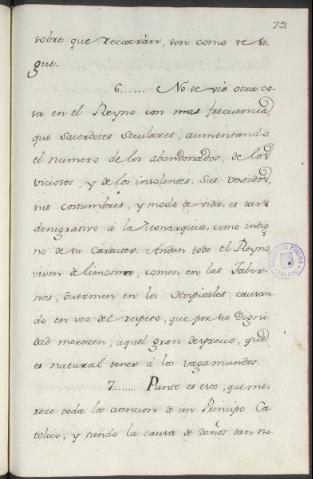 79.
sobre que recaerán, son como se si-
gue.
6...... No se vée otra co-
sa en el Reyno con mas frecuencia,
que Sacerdotes Seculares, aumentando
el numero de los abandonados, de los
viciosos, y de los insolentes. Sus vestidos,
sus costumbres, y modo de vida, es tan
denigrativo á la Monarquia, como indig-
no de su Caracter. Andan todo el Reyno,
viven de limosna, comen en las Taber-
nas, duermen en los Hospitales, causan-
do en vez del respeto, que por su Digni-
dad merecen, aquel gran desprecio, que
es natural tener á los vagamundos.
7...... Punto es este, que me-
rece toda la atencion de un Principe Ca-
tolico, y siendo la causa de daños tan no-